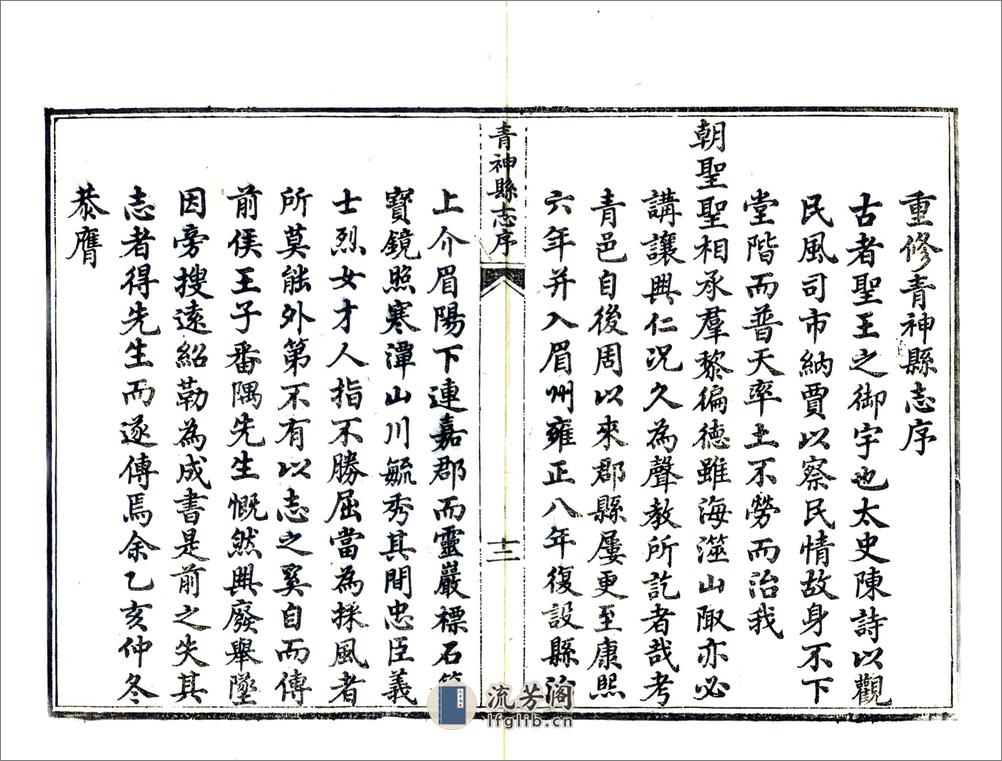 重修青神縣志序
古者聖王之御宇也太史陳詩以觀
民風司市納賈以察民情故身不下
堂階而普天率土不勞而治我
朝聖聖相承羣黎徧德雖海澨山陬亦必
講讓興仁况久為聲教所訖者哉考
青邑自後周以來郡縣屢更至康熙
六年并入眉州雍正八年復設縣治
青神縣志序
十二
上介眉陽下連嘉郡而靈巖標石筍
寶鏡照寒潭山川毓秀其間忠臣義
士烈女才人指不勝屈當為採風者
所莫能外第不有以志之奚自而傳
前侯王子番隅先生慨然興廢舉墜
因旁搜遠紹勒為成書是前之失其
志者得先生而遂傳焉余乙亥仲冬
恭膺
流芳阁
lfglib.cn